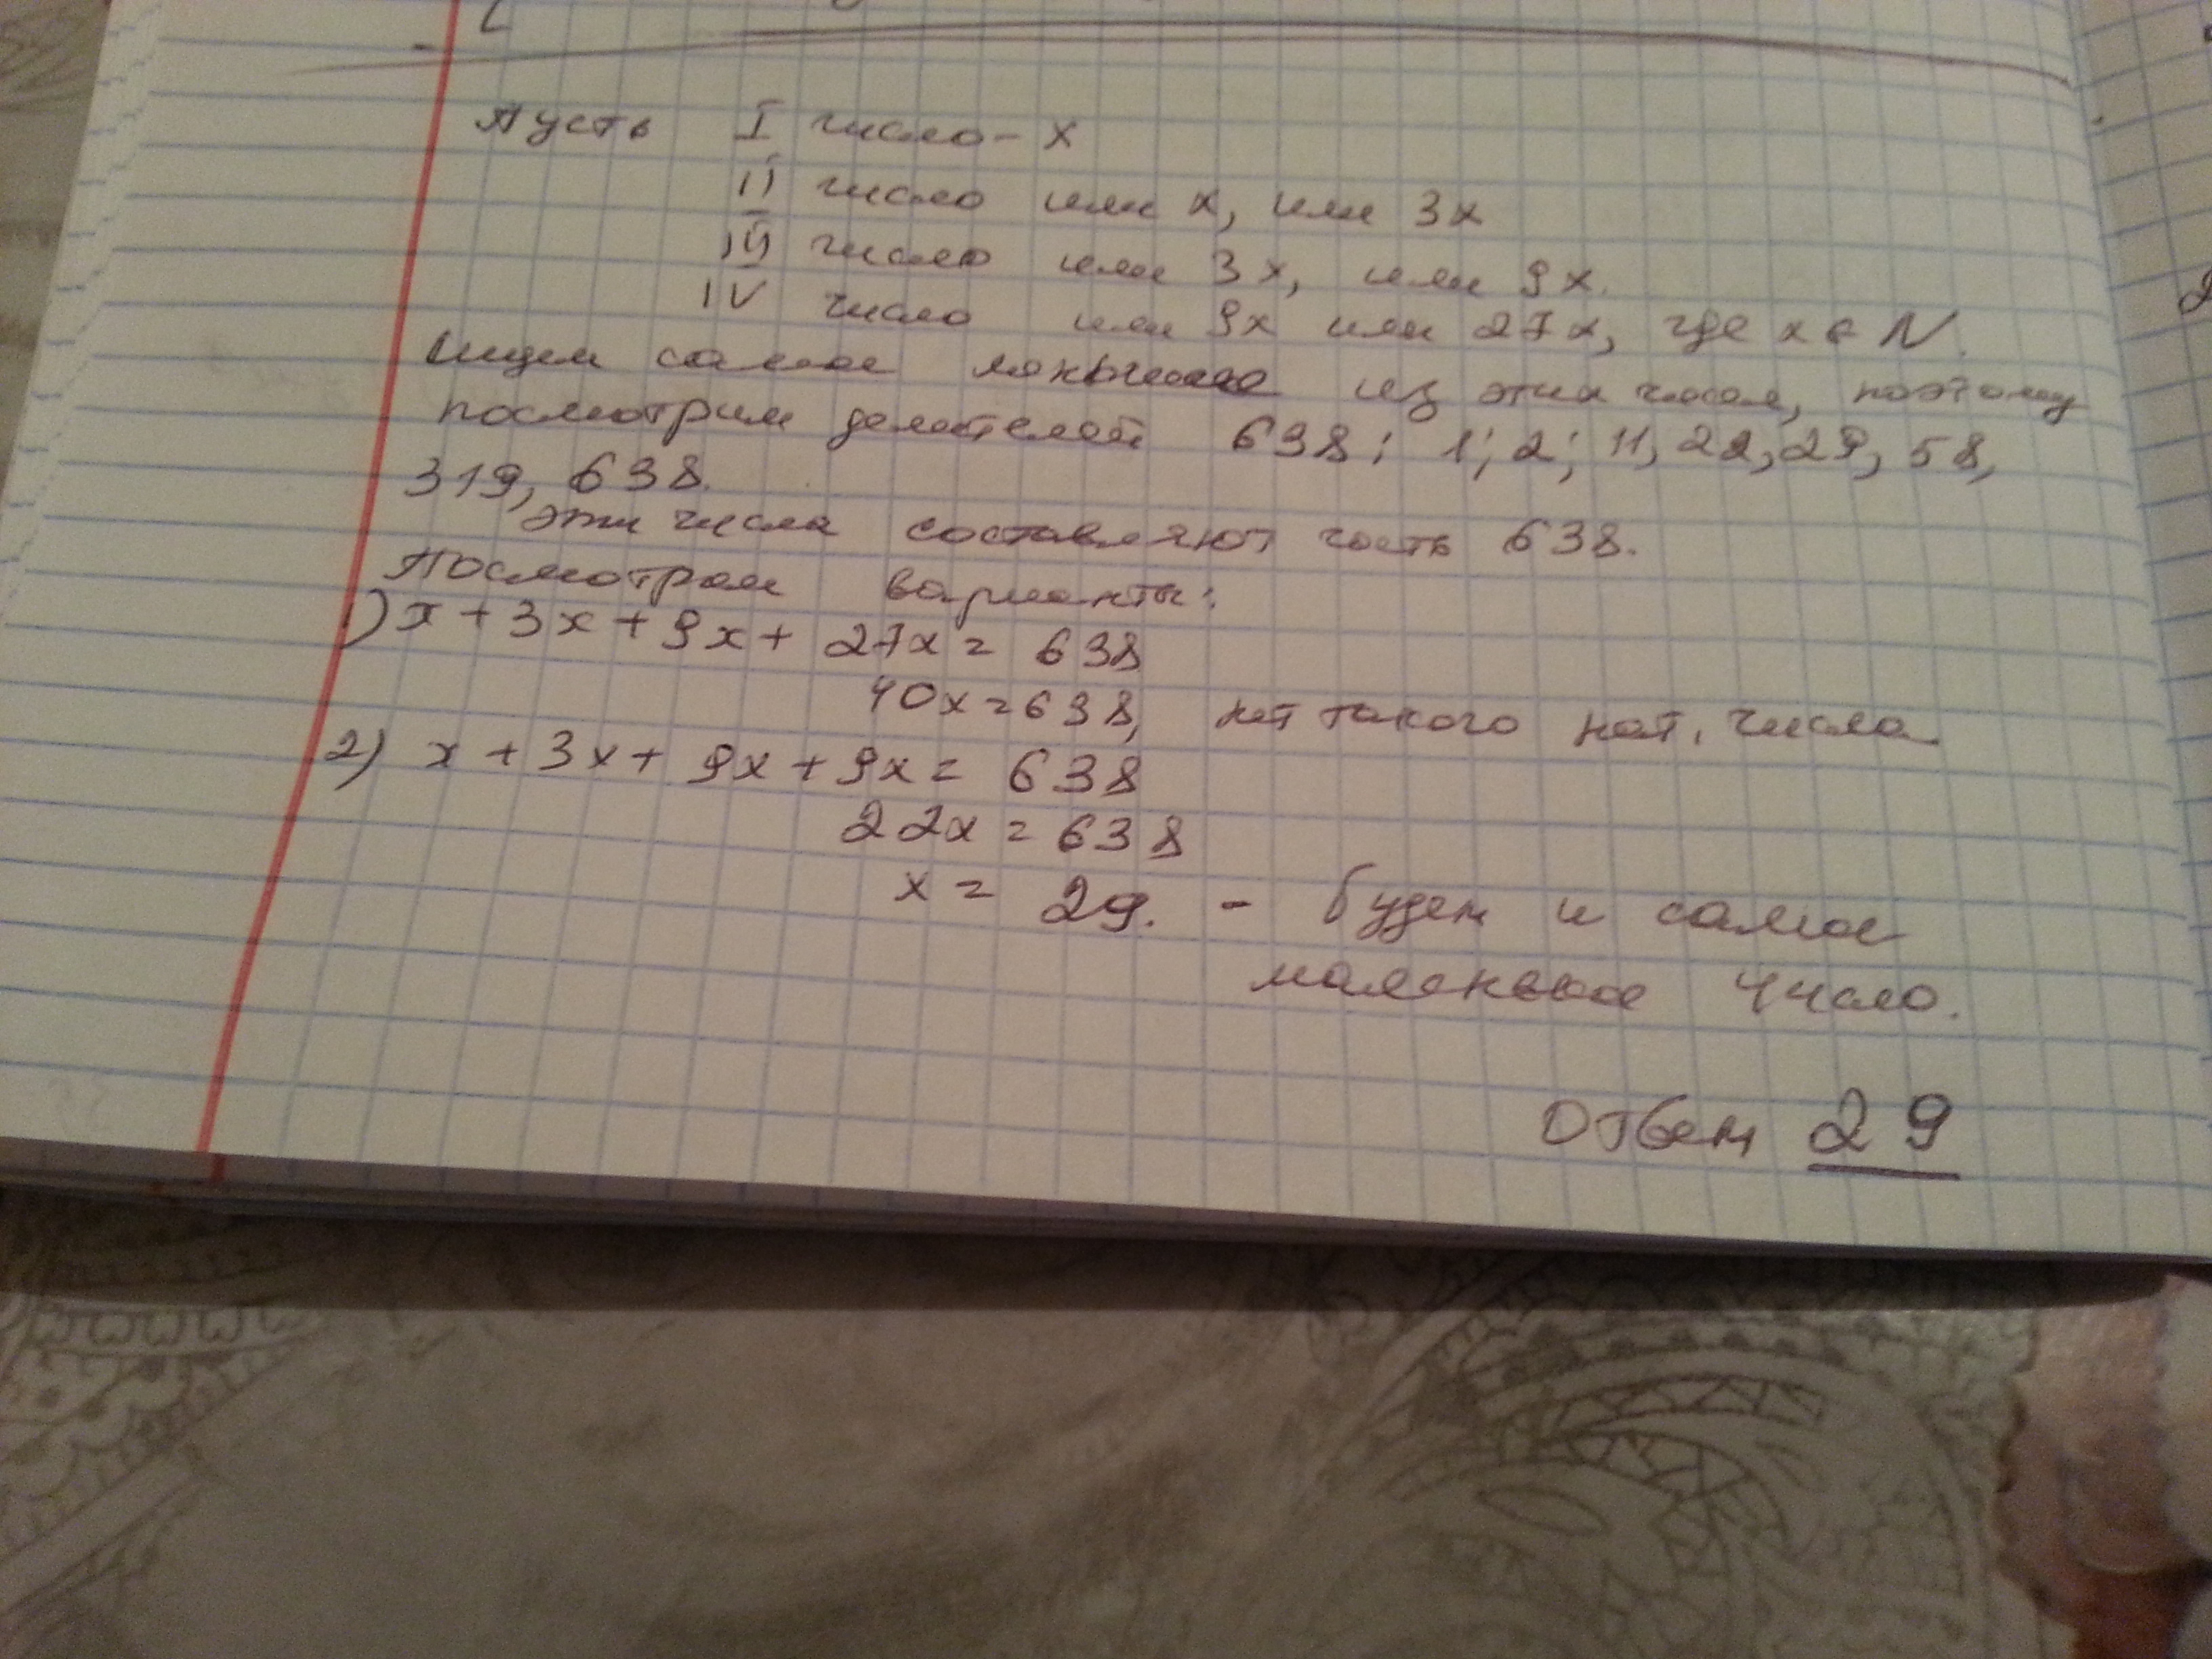 Пусть I число - x
II число или x, или 3x
III число или 3x, или 9x.
IV число или 9x или 27x, где x ∈ N.
Ищем самое меньшее из этих чисел, поэтому
посмотрим делителей 638: 1; 2; 11, 22, 29, 58,
319, 638.
эти числа составляют часть 638.
Посмотрим варианты:
1) x + 3x + 9x + 27x = 638
40x = 638, нет такого нат. числа
2) x + 3x + 9x + 9x = 638
22x = 638
x = 29. - будет и самое
маленькое число.
Ответ 29